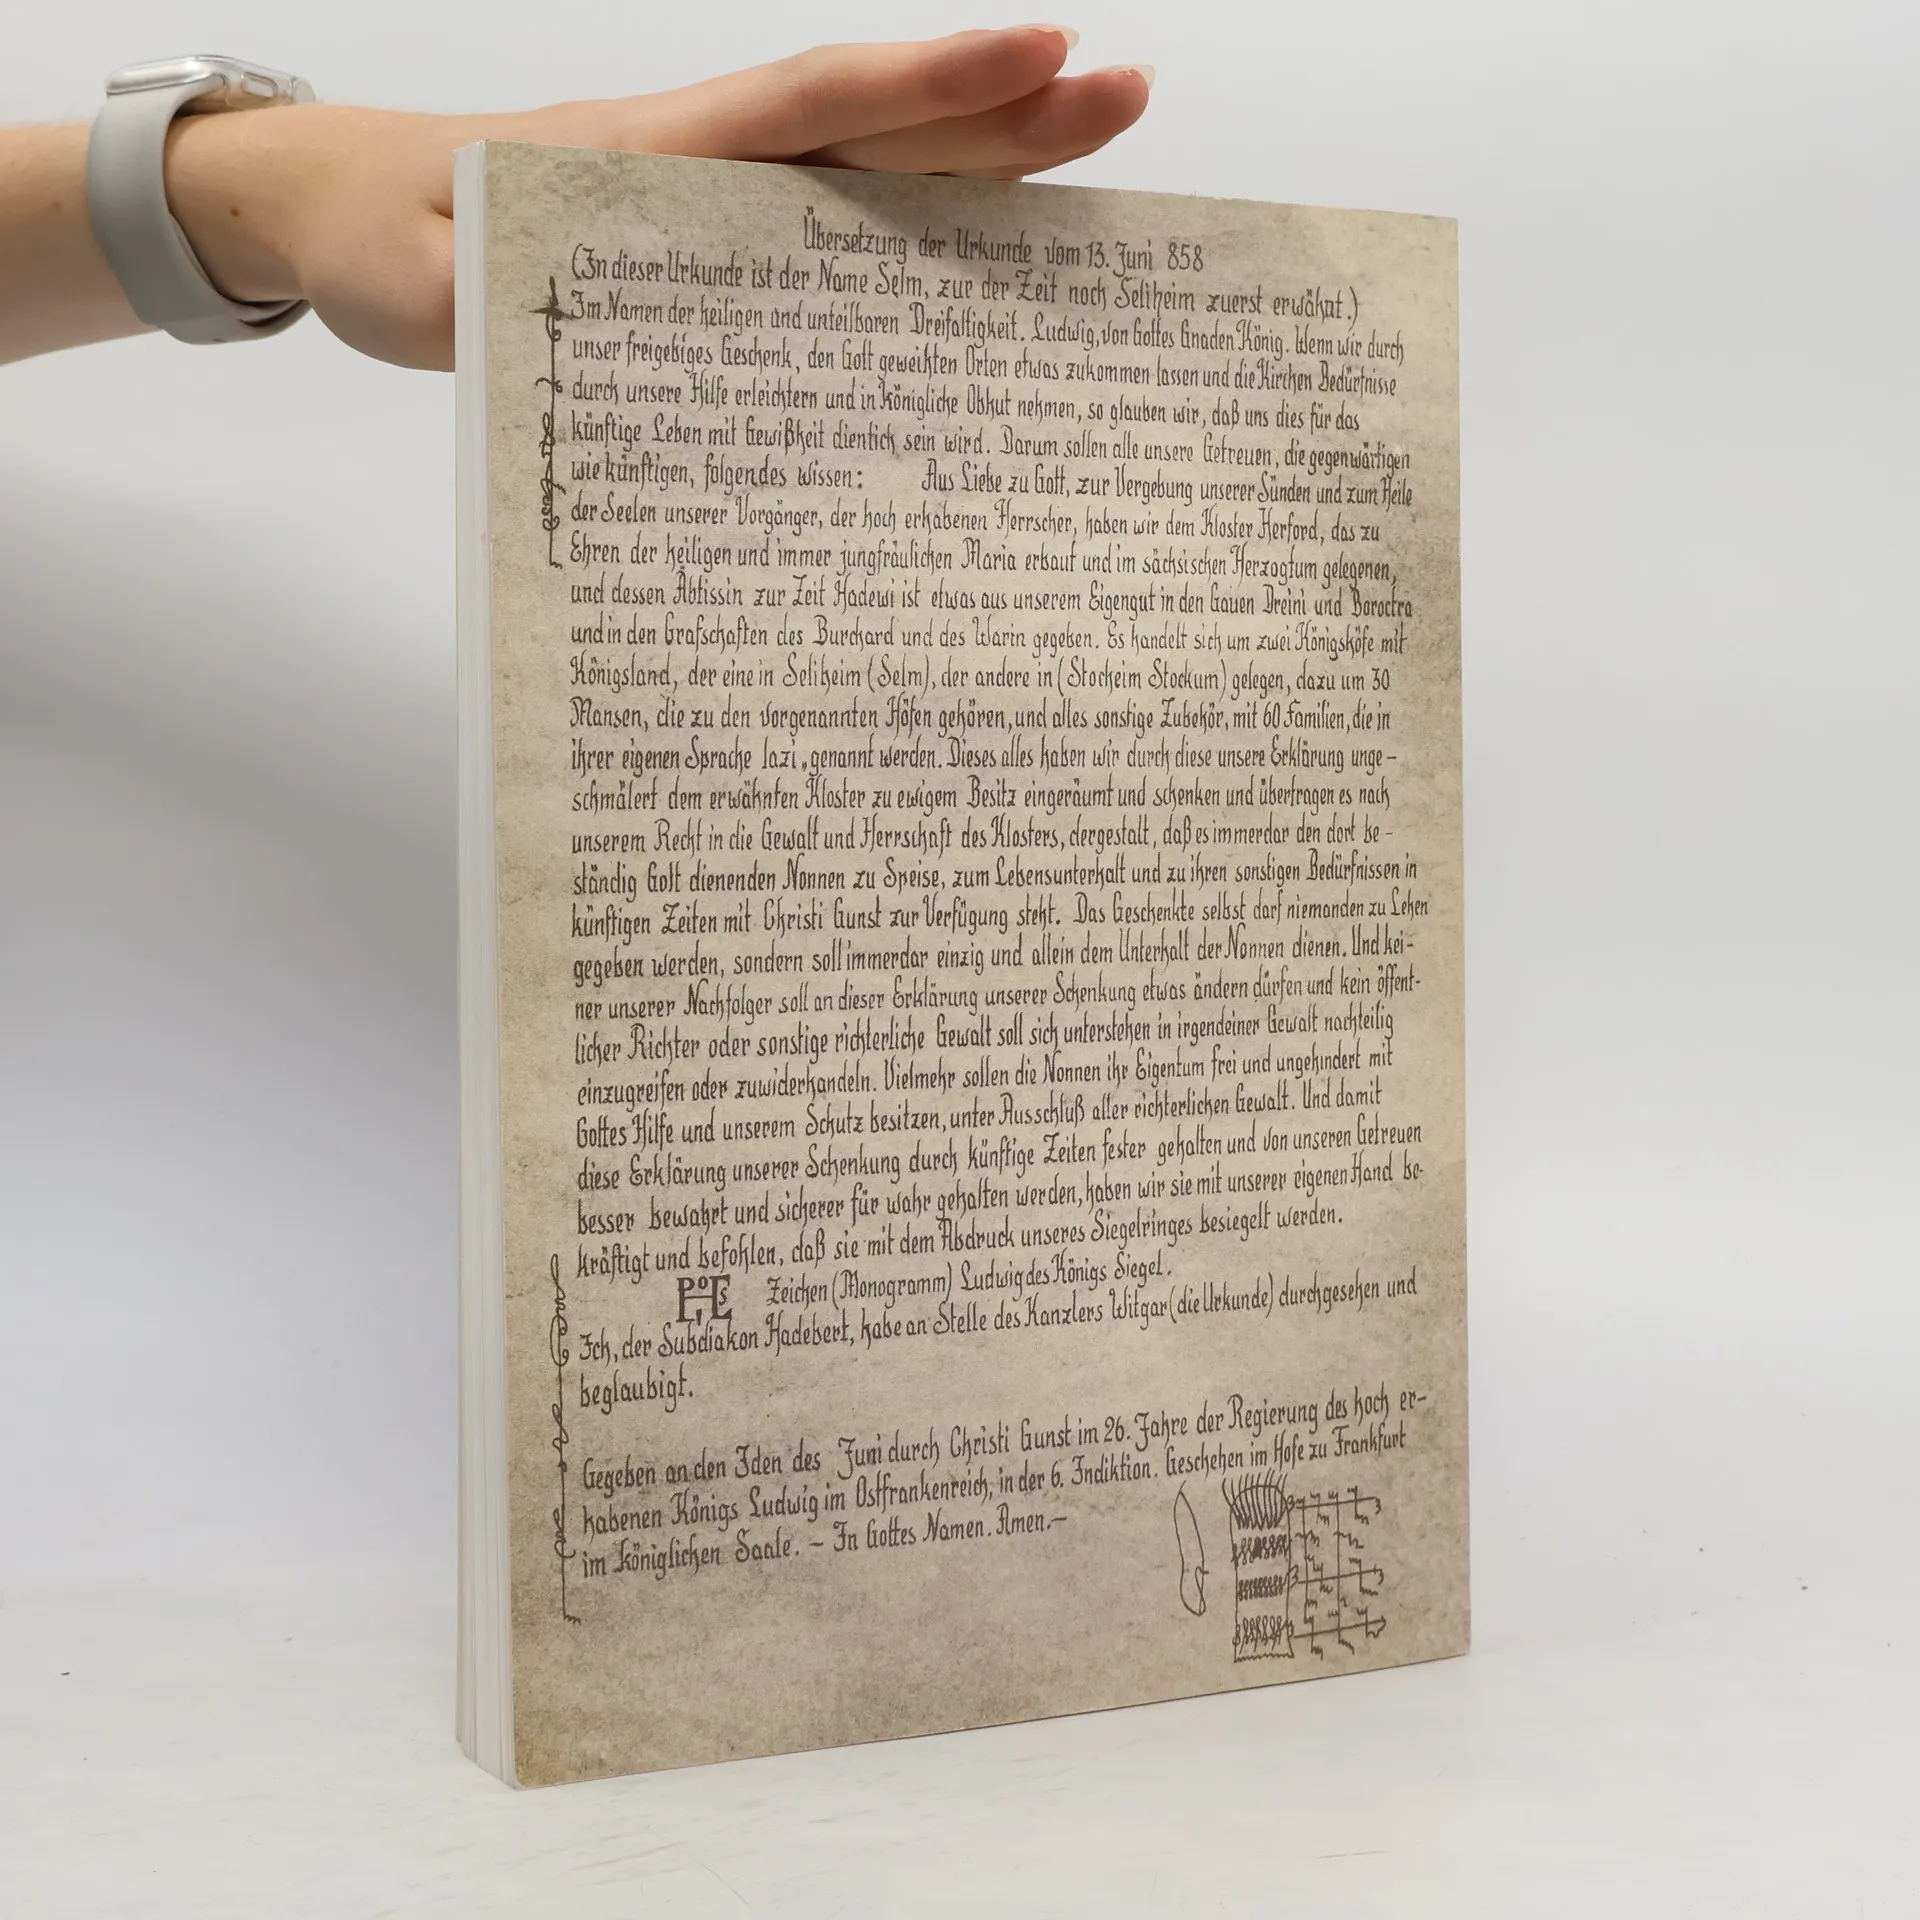 Übersetzung der Urkunde vom 13. Juni 858
(In dieser Urkunde ist der Name Selm, zur der Zeit noch Seliheim zuerst erwähnt.)
Im Namen der heiligen and unteilbaren Dreifaltigkeit. Ludwig, von Gottes Gnaden König. Wenn wir durch
unser freigebiges Geschenk, den Gott geweihten Orten etwas zukommen lassen und die Kirchen Bedürfnisse
durch unsere Hilfe erleichtern und in königliche Obhut nehmen, so glauben wir, daß uns dies für das
künftige Leben mit Gewißheit dientich sein wird. Darum sollen alle unsere Getreuen, die gegenwärtigen
wie künftigen, folgendes wissen: Aus Liebe zu Gott, zur Vergebung unserer Sünden und zum Heile
der Seelen unserer Vorgänger, der hoch erhabenen Herrscher, haben wir dem Kloster Herford, das zu
Ehren der heiligen und immer jungfräulichen Maria erbaut und im sächsischen Herzogtum gelegenen,
und dessen Äbtissin zur Zeit Hadewi ist etwas aus unserem Eigengut in den Gauen Dreini und Boroctra
und in den Grafschaften des Burchard und des Warin gegeben. Es handelt sich um zwei Königshöfe mit
Königsland, der eine in Seliheim (Selm), der andere in (Stocheim Stockum) gelegen, dazu um 30
Mansen, die zu den vorgenannten Höfen gehören, und alles sonstige Zubehör, mit 60 Familien, die in
ihrer eigenen Sprache lazi„ genannt werden. Dieses alles haben wir durch diese unsere Erklärung unge-
schmälert dem erwähnten Kloster zu ewigem Besitz eingeräumt und schenken und übertragen es nach
unserem Recht in die Gewalt und Herrschaft des Klosters, dergestalt, daß es immerdar den dort be-
ständig Gott dienenden Nonnen zu Speise, zum Lebensunterhalt und zu ihren sonstigen Bedürfnissen in
künftigen Zeiten mit Christi Gunst zur Verfügung steht. Das Geschenkte selbst darf niemanden zu Lehen
gegeben werden, sondern soll immerdar einzig und allein dem Unterhalt der Nonnen dienen. Und kei-
ner unserer Nachfolger soll an dieser Erklärung unserer Schenkung etwas ändern dürfen und kein öffent-
licher Richter oder sonstige richterliche Gewalt soll sich unterstehen in irgendeiner Gewalt nachteilig
einzugreifen oder zuwiderhandeln. Vielmehr sollen die Nonnen ihr Eigentum frei und ungehindert mit
Gottes Hilfe und unserem Schutz besitzen, unter Ausschluß aller richterlichen Gewalt. Und damit
diese Erklärung unserer Schenkung durch künftige Zeiten fester gehalten und von unseren Getreuen
besser bewahrt und sicherer für wahr gehalten werden, haben wir sie mit unserer eigenen Hand be-
kräftigt und befohlen, daß sie mit dem Abdruck unseres Siegelringes besiegelt werden.
Zeichen (Monogramm) Ludwig des Königs Siegel.
Ich, der Subdiakon Hadebert, habe an Stelle des Kanzlers Witgar (die Urkunde) durchgesehen und
beglaubigt.
Gegeben an den Iden des Juni durch Christi Gunst im 26. Jahre der Regierung des hoch er-
habenen Königs Ludwig im Ostfrankenreich, in der 6. Indiktion. Geschehen im Hofe zu Frankfurt
im königlichen Saale. – In Gottes Namen. Amen.–